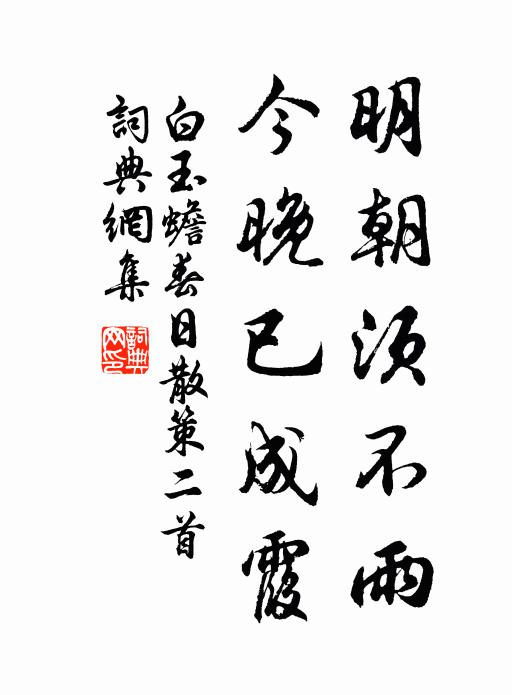 明朝須不雨
今晚已成霞
白玉蟾春日散策二首
詞典網集
詞典网印